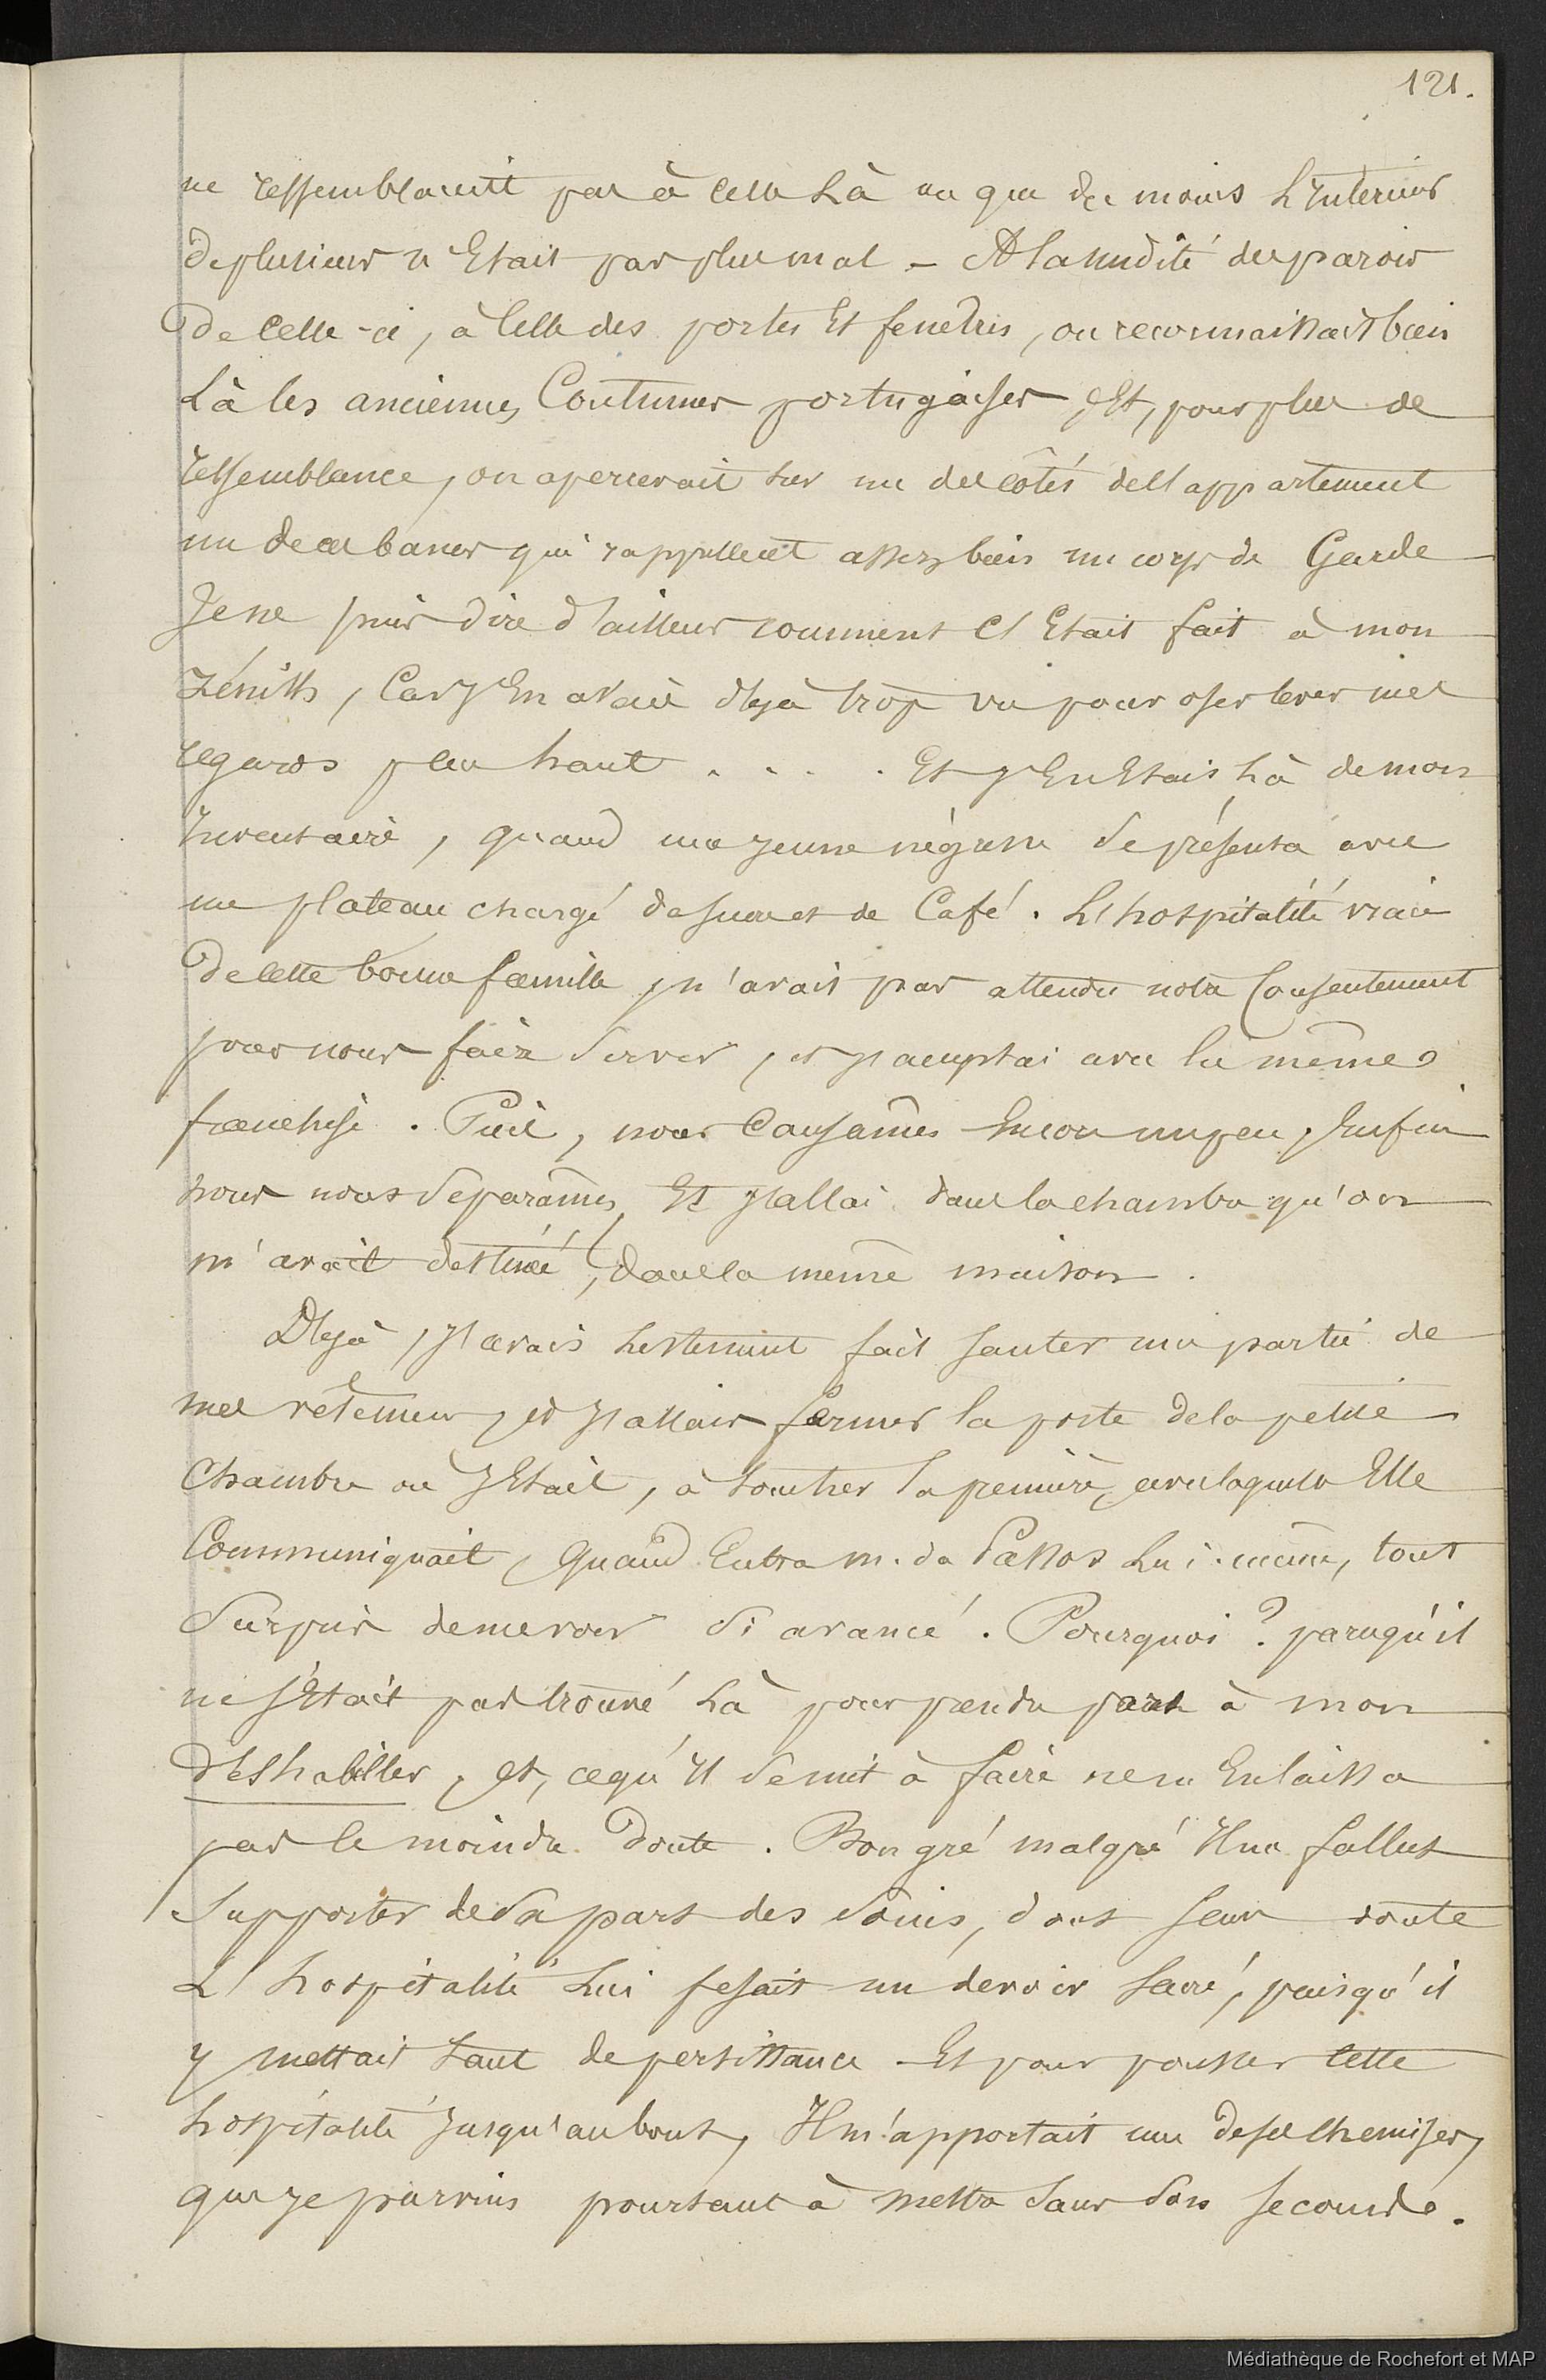 121.
ne ressemblaient pas à celle là ou que du moins L'Intérieur
de plusieurs n'Etait pas plus mal - A la nudité des parois
De Celle-ci, à Celle des portes Et fenêtres, on reconnaissait bien
Là les anciennes Coutumes portugaises, Et, pour plus de
ressemblance, on apercevait sur un des côtés de l'appartement
un de ces bancs qui rappellent assez bien un corps de Garde
Je ne puis dire d'ailleurs comment C'Etait fait à mon
Zénith, Car J'En avais déjà trop vu pour oser lever mes
regards plus haut . . . . Et J'En Etais Là de mon
Inventaire, quand une jeune négresse se présenta avec
un plateau chargé de sucre et de Café. L'hospitalité vraie
De cette bonne famille, n'avait pas attendu notre Consentement
pour nous faire Servir, et J'acceptai avec la même
franchise. Puis, nous Causâmes Encore un peu, Enfin
nous nous séparâmes, Et J'allai dans la chambre qu'on
m'avait destinée, dans la même maison.
Déjà, J'avais Lestement fait sauter une partie de
mes vêtemens, et J'allais fermer la porte de la petite
Chambre où J'Etais, à toucher la première, avec laquelle Elle
Communiquait, Quand Entra M. da Passos Lui-même, tout
Surpris de me voir Si avancé. Pourquoi ? parcequ'il
ne s'Etait pas trouvé Là pour prendre part à mon
déshabiller, Et, ce qu'Il se mit à faire ne m'En laissa
pas le moindre Doute. Bon gré malgré Il me fallut
Supporter de Sa part des Soins, dont sans doute
L'hospitalité Lui fesait un devoir Sacré, puisqu'il
y mettait tant de persistance - Et pour pousser cette
hospitalité Jusqu'au bout, Il m'apportait une de ses Chemises,
que Je parvins pourtant à mettre Sans Son secours.
Médiathèque de Rochefort et MAP